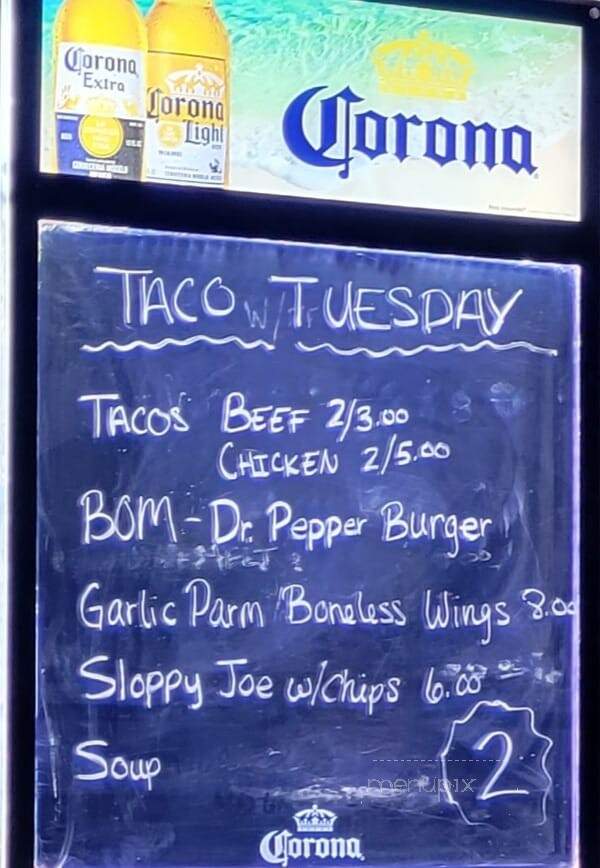 Corona
Extra
Corona
Light
Corona
TACO TUESDAY
TACOS BEEF 2/3.00
CHICKEN 2/5.00
BOM - Dr. Pepper Burger
Garlic Parm Boneless Wings 8.00
Sloppy Joe w/Chips 6.00
Soup
2
menupix
Corona